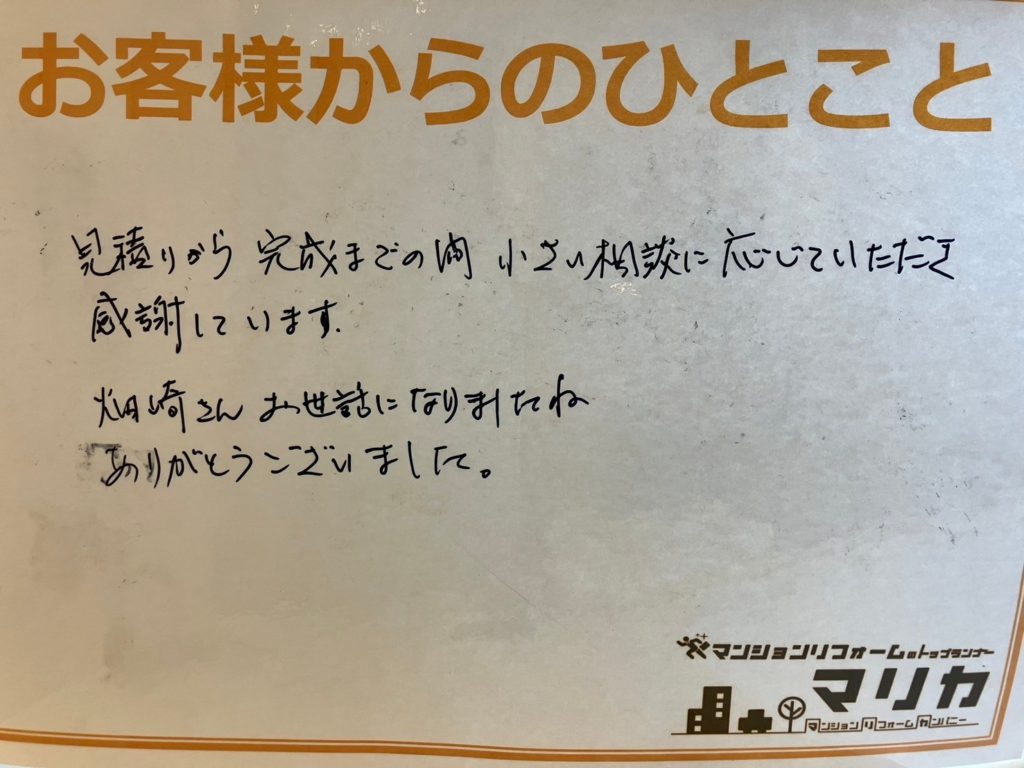 お客様からのひとこと
見積りから 完成までの間 小さい相談に応じていただき
感謝しています.
畑崎さん お世話になりましたね
ありがとうございました。
マンションリフォームのトップランナー
マリカ
マンションリフォームカンパニー